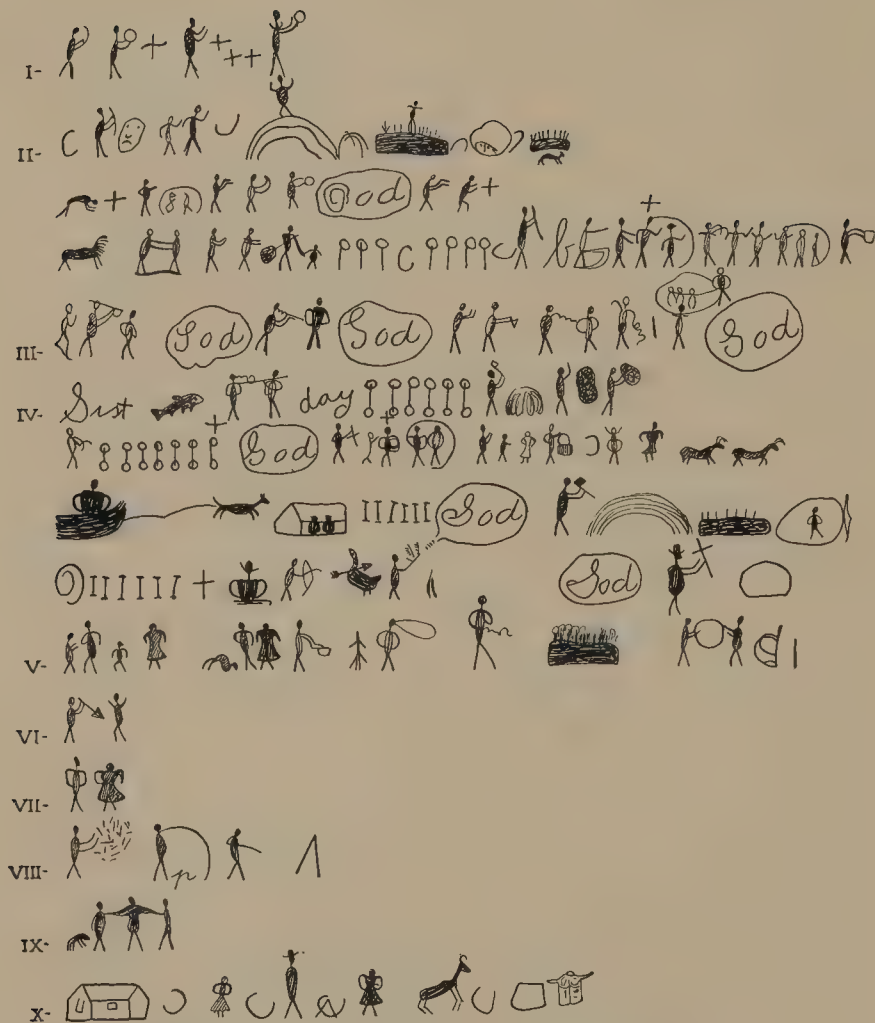 I-
II-
God
III- God God God
IV- day
God
God
God
V-
VI-
VII-
VIII- p
IX-
X-